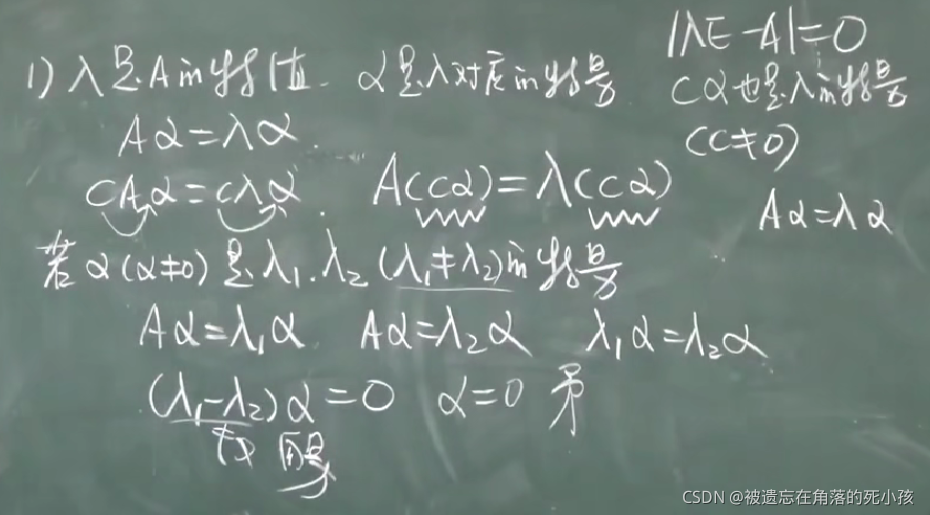 |λE-A|=0
1) λ是A的特值. α是λ对应的特量
cα也是λ的特量
Aα=λα.
(c≠0)
cAα=cλα. A(cα)=λ(cα)
Aα=λα
若α(α≠0)是λ₁.λ₂(λ₁≠λ₂)的特量
Aα=λ₁α Aα=λ₂α λ₁α=λ₂α
(λ₁-λ₂)α=0 α=0 矛
数 向量
CSDN @被遗忘在角落的死小孩